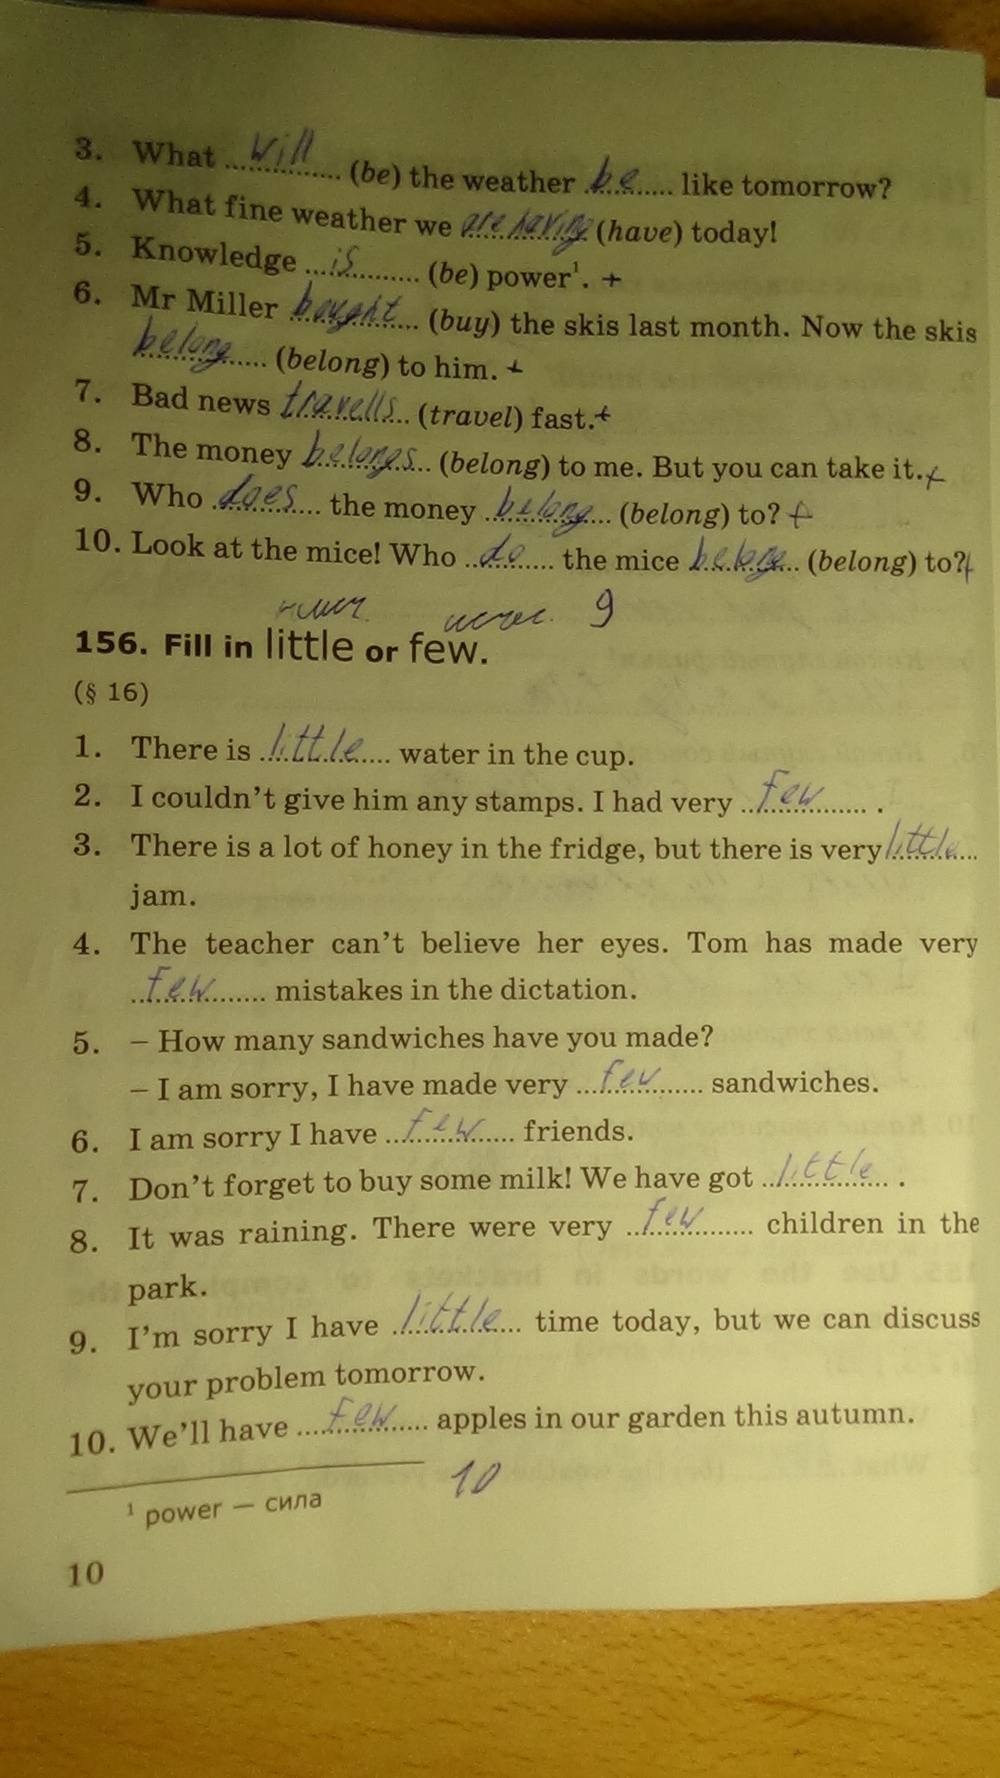 3. What ...will... (be) the weather ...be... like tomorrow?
4. What fine weather we are having (have) today!
5. Knowledge ...is... (be) power¹. +
6. Mr Miller bought (buy) the skis last month. Now the skis
belong (belong) to him. +
7. Bad news travells (travel) fast. +
8. The money belongs (belong) to me. But you can take it. +
9. Who does the money belong (belong) to? +
10. Look at the mice! Who do the mice belong (belong) to? +
9
156. Fill in little or few.
(§ 16)
1. There is little water in the cup.
2. I couldn't give him any stamps. I had very few .
3. There is a lot of honey in the fridge, but there is very little
jam.
4. The teacher can't believe her eyes. Tom has made very
few mistakes in the dictation.
5. – How many sandwiches have you made?
– I am sorry, I have made very few sandwiches.
6. I am sorry I have few friends.
7. Don't forget to buy some milk! We have got little .
8. It was raining. There were very few children in the
park.
9. I'm sorry I have little time today, but we can discuss
your problem tomorrow.
10. We'll have few apples in our garden this autumn.
10
¹ power — сила
10